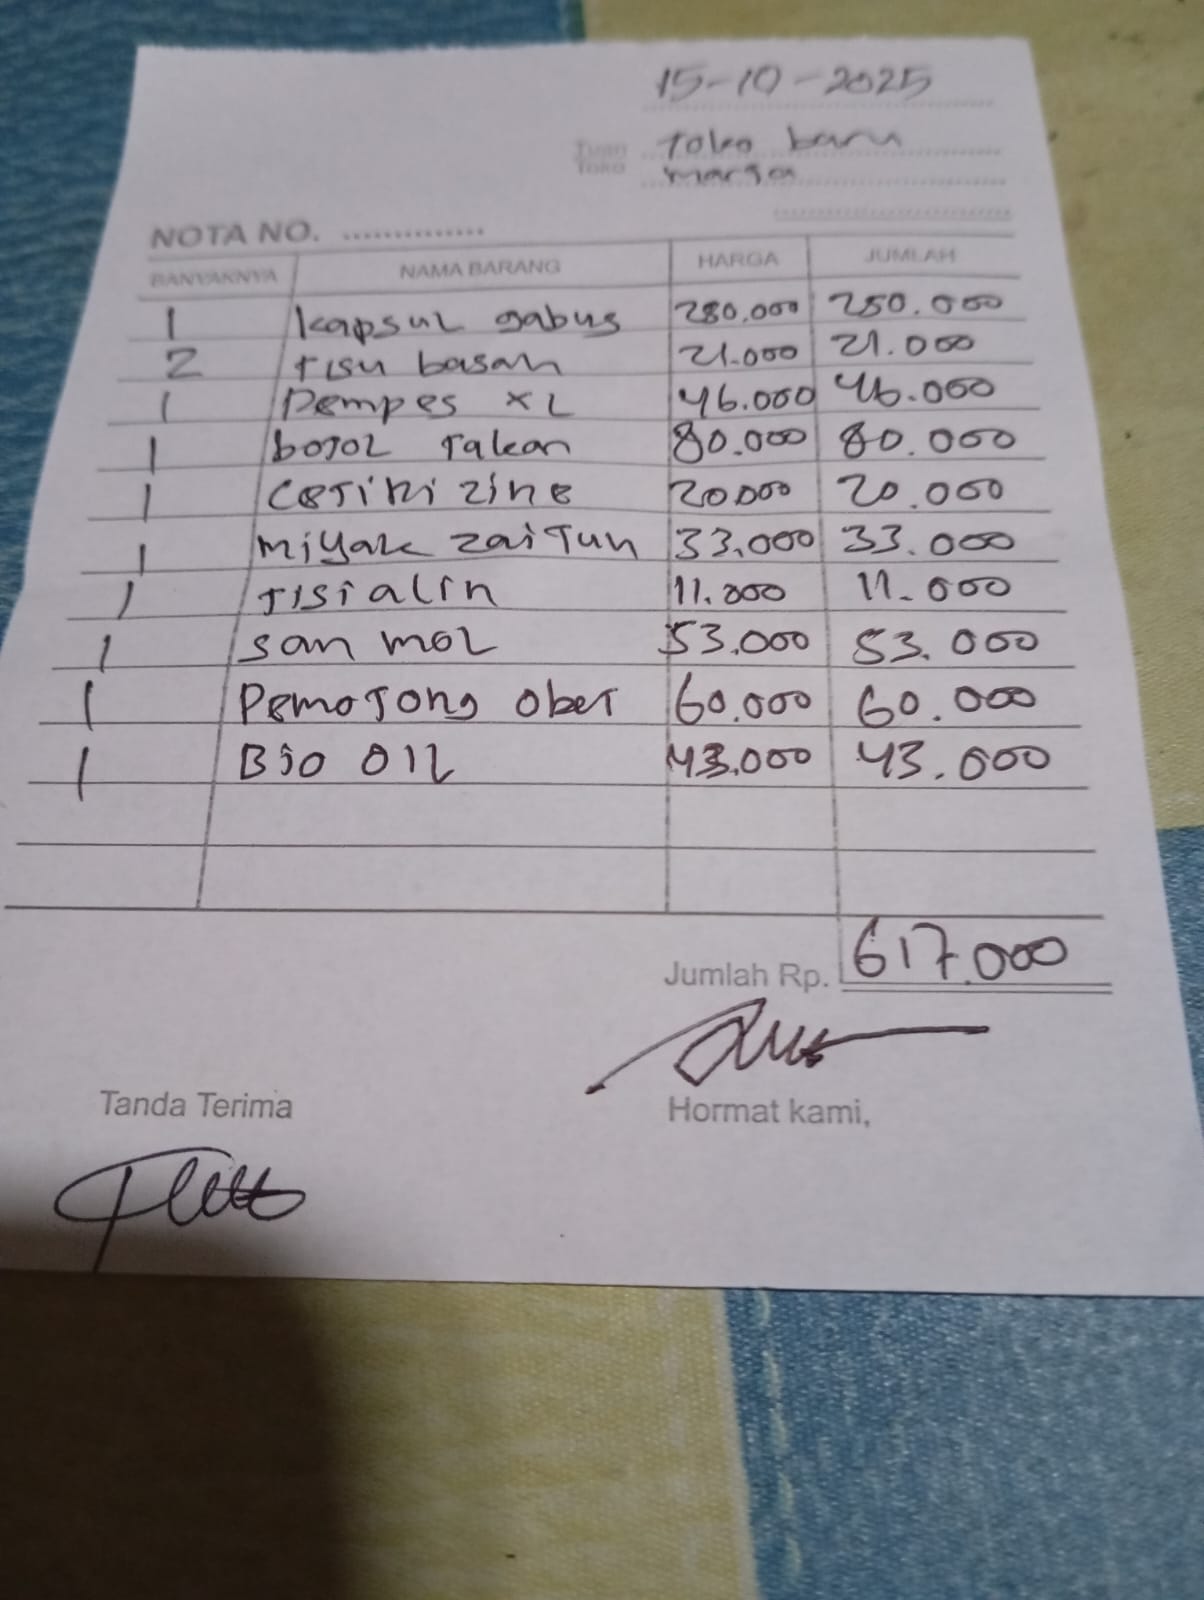 15-10-2025
Tuan Toko baru
Toko marga
NOTA NO. ..............
BANYAKNYA NAMA BARANG HARGA JUMLAH
1 kapsul gabus 250.000 250.000
2 tisu basah 21.000 21.000
1 Pempes XL 46.000 46.000
1 botol takan 80.000 80.000
1 Cetirizine 20.000 20.000
1 miyak zaitun 33.000 33.000
1 11.000 11.000
1 san mol 53.000 53.000
1 Pemotong obet 60.000 60.000
1 Bio OIL 43.000 43.000
Jumlah Rp. 617.000
Tanda Terima Hormat kami,